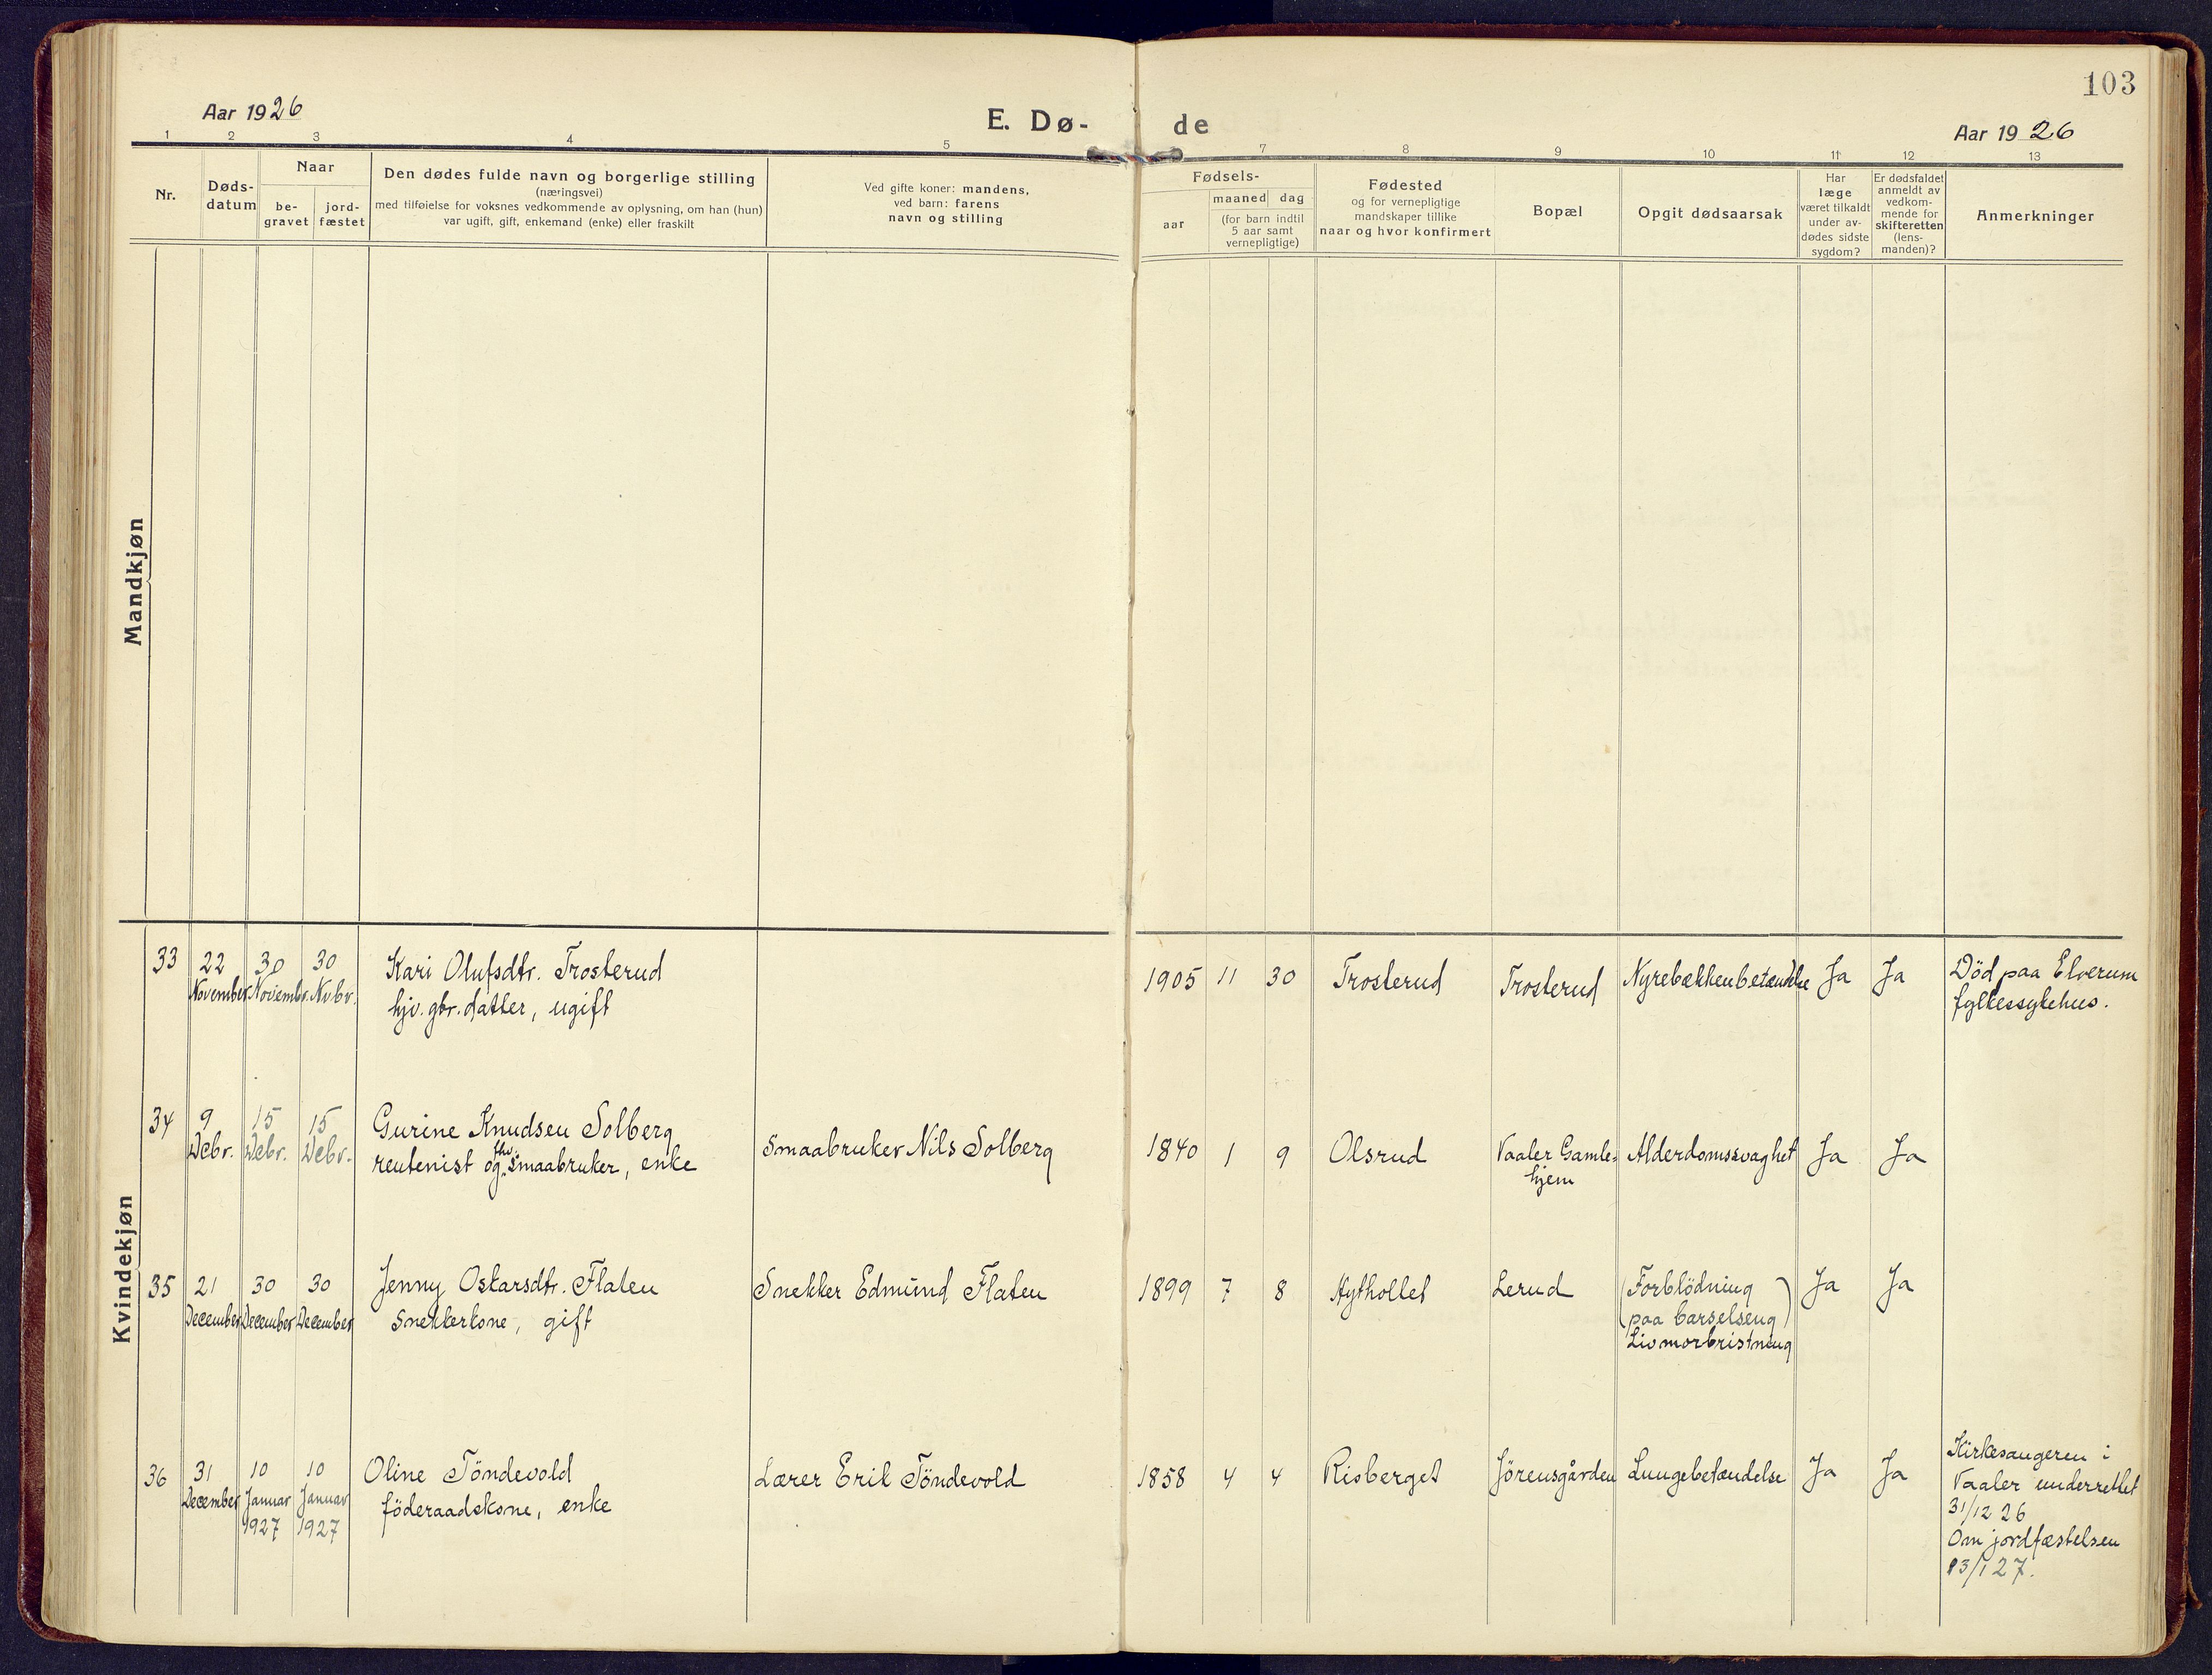 103
Aar 1926
E. Dø-
de
Aar 1926
1
2
3
4
5
7
8
9
10
11
12
13
Nr.
Døds-
datum
Naar
be-
gravet
jord-
fæstet
Den dødes fulde navn og borgerlige stilling
(næringsvei)
med tilføielse for voksnes vedkommende av oplysning, om han (hun)
var ugift, gift, enkemand (enke) eller fraskilt
Ved gifte koner: mandens,
ved barn: farens
navn og stilling
Fødsels-
aar
maaned
dag
(for barn indtil
5 aar samt
vernepligtige)
Fødested
og for vernepligtige
mandskaper tillike
naar og hvor konfirmert
Bopæl
Opgit dødsaarsak
Har
læge
været tilkaldt
under av-
dødes sidste
sygdom?
Er dødsfaldet
anmeldt av
vedkom-
mende for
skifteretten
(lens-
manden)?
Anmerkninger
Mandkjøn
Kvindekjøn
33
22
November
30
Novembr.
30
Nvbr.
Kari Olufsdtr. Trosterud
hjv. gbr. datter, ugift
1905
11
30
Trosterud
Trosterud
Nyrebækkenbetændelse
Ja
Ja
Død paa Elverum
fylkessykehus.
34
9
Debr.
15
Debr.
15
Debr.
Gurine Knudsen Solberg
rentenist og fhv. smaabruker, enke
Smaabruker Nils Solberg
1840
1
9
Olsrud
Vaaler Gamle=
hjem
Alderdomssvaghet
Ja
Ja
35
21
December
30
December
30
December
Jenny Oskarsdtr. Flaten
Snekkerkone, gift
Snekker Edmund Flaten
1899
7
8
Hythollet
Lerud
(Forblödning
paa barselseng)
Livmorbristning
Ja
Ja
36
31
December
10
Januar
1927
10
Januar
1927
Oline Töndevold
föderaadskone, enke
Lærer Erik Töndevold
1858
4
4
Risberget
Jörensgården
Lungebetændelse
Ja
Ja
Kirkesangeren i
Vaaler underrettet
31/12 26
Om jordfæstelsen
13/1 27.